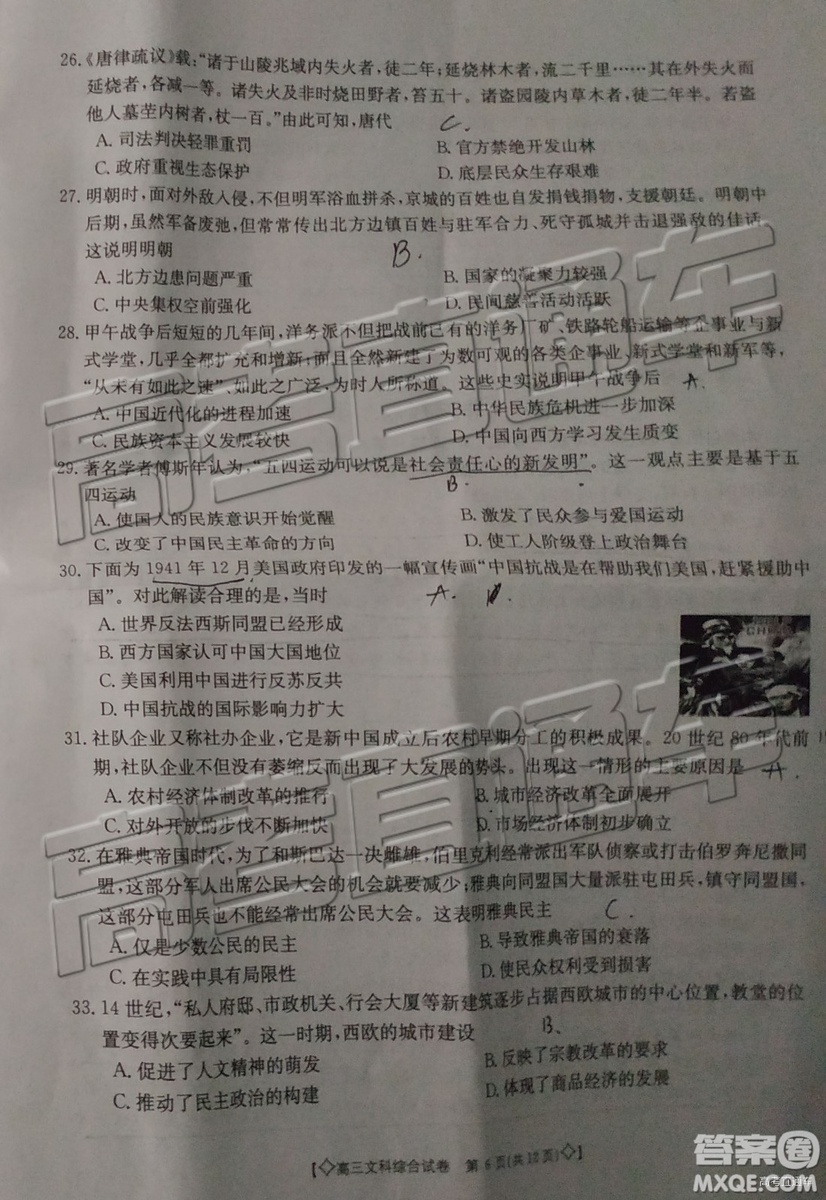 26.《唐律疏议》载:“诸于山陵兆域内失火者,徒二年;延烧林木者,流二千里……其在外失火而
延烧者,各减一等。诸失火及非时烧田野者,笞五十。诸盗园陵内草木者,徒二年半。若盗
他人墓茔内树者,杖一百。”由此可知,唐代 C.
A. 司法判决轻罪重罚 B. 官方禁绝开发山林
C. 政府重视生态保护 D. 底层民众生存艰难
27. 明朝时,面对外敌入侵,不但明军浴血拼杀,京城的百姓也自发捐钱捐物,支援朝廷。明朝中
后期,虽然军备废弛,但常常传出北方边镇百姓与驻军合力、死守孤城并击退强敌的佳话。
这说明明朝 B.
A. 北方边患问题严重 B. 国家的凝聚力较强
C. 中央集权空前强化 D. 民间慈善活动活跃
28. 甲午战争后短短的几年间,洋务派不但把战前已有的洋务厂矿、铁路轮船运输等企事业与新
式学堂,几乎全都扩充和增新;而且全然没有的各类企事业、新式学堂和新军等,
“从未有如此之速”、如此之广泛,为时人所称道。这些史实说明甲午战争后 A.
A. 中国近代化的进程加速 B. 中华民族危机进一步加深
C. 民族资本主义发展较快 D. 中国向西方学习发生质变
29. 著名学者傅斯年认为,“五四运动可以说是社会责任心的新发明”。这一观点主要是基于五
四运动 B.
A. 使国人的民族意识开始觉醒 B. 激发了民众参与爱国运动
C. 改变了中国民主革命的方向 D. 使工人阶级登上政治舞台
30. 下面为 1941 年 12 月美国政府印发的一幅宣传画“中国抗战是在帮助我们美国,赶紧援助中
国”。对此解读合理的是,当时 A.
A. 世界反法西斯同盟已经形成
B. 西方国家认可中国大国地位
C. 美国利用中国进行反苏反共
D. 中国抗战的国际影响力扩大
31. 社队企业又称社办企业,它是新中国成立后农村早期分工的积极成果。20 世纪 80 年代前
期,社队企业不但没有萎缩反而出现了大发展的势头。出现这一情形的主要原因是 A.
A. 农村经济体制改革的推行 B. 城市经济体制改革全面展开
C. 对外开放的步伐不断加快 D. 市场经济体制初步确立
32. 在雅典帝国时代,为了和斯巴达一决雌雄,伯里克利经常派出军队侦察或打击伯罗奔尼撒同
盟,这部分军人出席公民大会的机会就要减少;雅典向同盟国大量派驻屯田兵,镇守同盟国,
这部分屯田兵也不能经常出席公民大会。这表明雅典民主 C.
A. 仅是少数公民的民主 B. 导致雅典帝国的衰落
C. 在实践中具有局限性 D. 使民众权利受到损害
33. 14 世纪,“私人府邸、市政机关、行会大厦等新建筑逐步占据西欧城市的中心位置,教堂的位
置变得次要起来”。这一时期,西欧的城市建设 B.
A. 促进了人文精神的萌发 B. 反映了宗教改革的要求
C. 推动了民主政治的构建 D. 体现了商品经济的发展
【◇高三文科综合试卷 第 6 页(共 12 页)◇】
高考直通车
答案圈
MXQE.COM